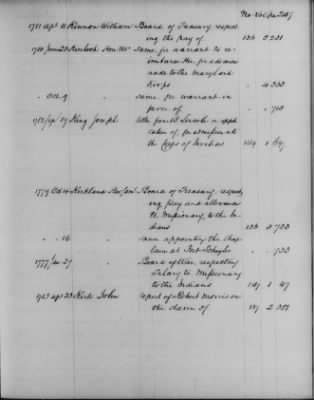 No Vol. Page
1781 apl 11 Kinnan William Board of Treasury, respect
ing the pay of 136 5 231
1780 June 26 Kinloch Hon. Mr same, for warrant to re-
imburse the, for advances
made to the Maryland
troops " 4 388
" Oct. 9 same, for warrant in
favor of " " 710
King Joseph
the Corps of Invalids 149 1
1779 Oct 14 Kirkland Rev. Saml Board of Treasury, respect
ing pay and allowances
to, Missionary, to the In-
dians 136 3 733
" " 16 same, appointing the Chap-
lain at Fort Schuyler " " 733
1777 27 Board of War, respecting
Salary to, Missionary
to the Indians 147 1 47
1783 apl 23 Kirk John report of Robert Morris on
the claim of 137 2